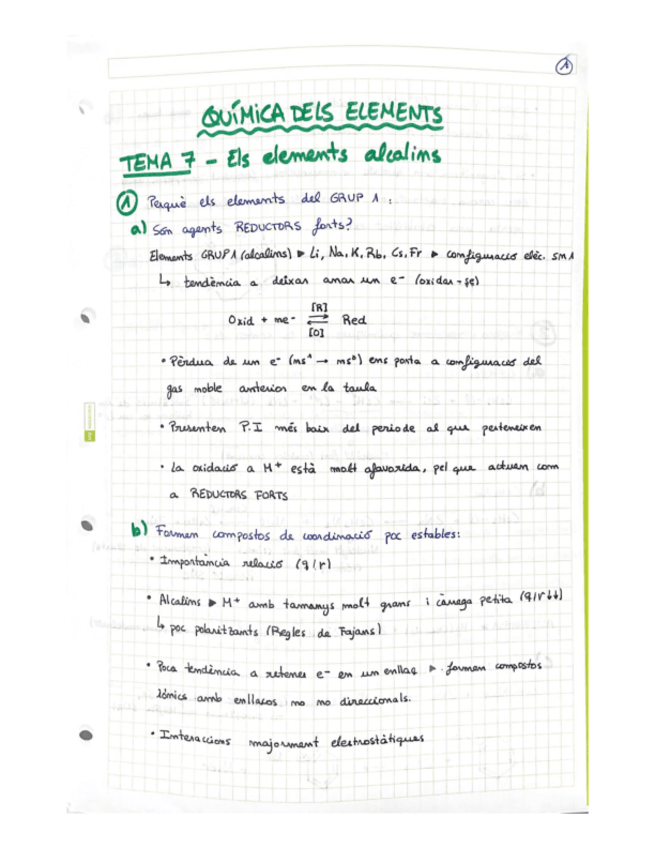 1
QUÍMICA DELS ELEMENTS
TEMA 7 - Els elements alcalins
1 Perquè els elements del GRUP 1:
a) Són agents REDUCTORS forts?
Elements GRUP 1 (alcalins) ▸ Li, Na, K, Rb, Cs, Fr ▸ configuració elèc. sn1
↳ tendència a deixar anar un e- (oxidar-se)
[R]
Oxid + ne- ⇌ Red
[O]
• Pèrdua de un e- (ns1 → ns0) ens porta a configuració del
gas noble anterior en la taula
• Presenten P.I més baix del periode al que perteneixen
• La oxidació a M+ està molt afavorida, pel que actuen com
a REDUCTORS FORTS
b) Formen compostos de coordinació poc estables:
• Importància relació (q/r)
• Alcalins ▸ M+ amb tamanys molt grans i càrrega petita (q/r↓↓)
↳ poc polaritzants (Regles de Fajans)
• Poca tendència a retenir e- en un enllaç ▸ formen compostos
iònics amb enllaços no no direccionals.
• Interaccions majorment electrostàtiques